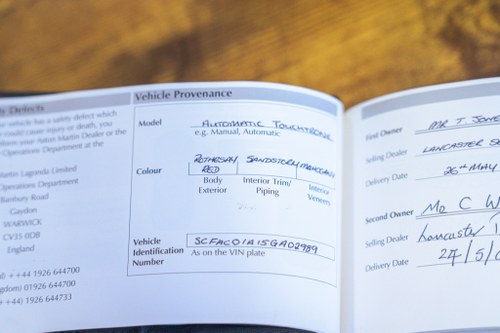 y Defects
vehicle safety defect which
could cause injury or death, you
inform your Aston Martin Dealer or the
Operations Department at the
Martin Lagonda Limited
Operations Department
Banbury Road
Gaydon
WARWICK
CV35 0DB
England
++44 1926 644700
gdom) 01926 644700
++44) 1926 644733
Vehicle Provenance
Model AUTOMATIC TOUCHTRONIC
e.g. Manual, Automatic
Colour ROTHESAY RED SANDSTORM MAHOGANY
Body Exterior
Interior Trim/ Piping
Interior Veneers
Vehicle Identification Number SCFAC01A15GA02989
As on the VIN plate
First Owner MR T JONE
Selling Dealer LANCASTER S
Delivery Date 26TH MAY
Second Owner Mr C W
Selling Dealer Lancaster
Delivery Date 27/5/0